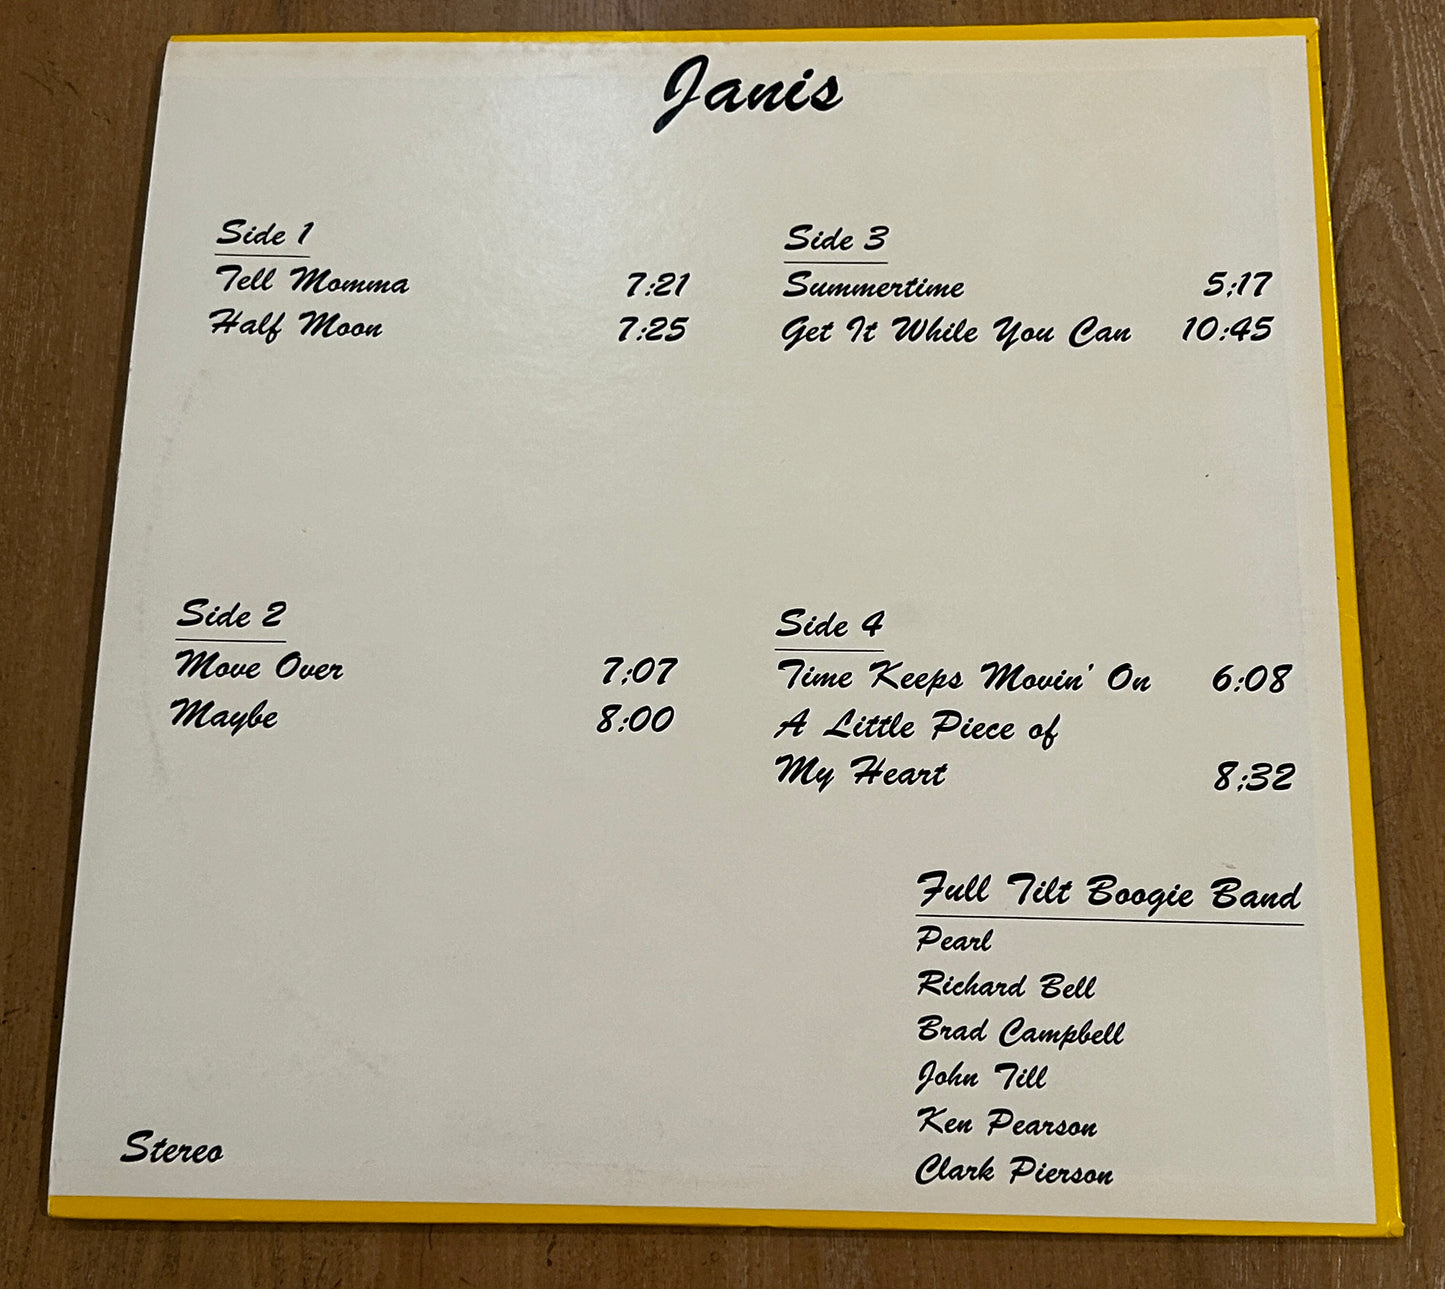 Janis
Side 1
Tell Momma 7:21
Half Moon 7:25
Side 2
Move Over 7;07
Maybe 8:00
Side 3
Summertime 5;17
Get It While You Can 10:45
Side 4
Time Keeps Movin' On 6:08
A Little Piece of
My Heart 8;32
Full Tilt Boogie Band
Pearl
Richard Bell
Brad Campbell
John Till
Ken Pearson
Clark Pierson
Stereo